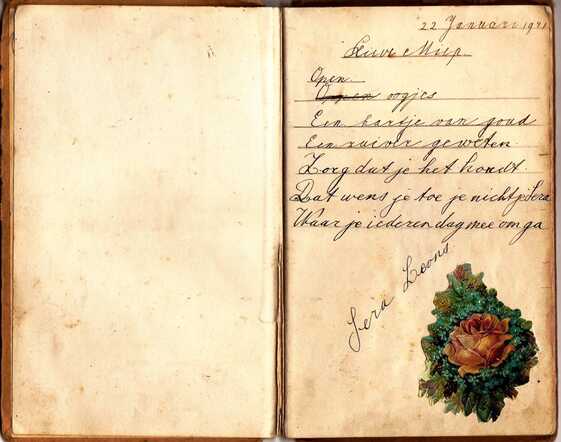 22 Januari 1941
Lieve Miep.
Open
Oopen oogjes
Een hartje van goud
Een zuiver geweten
Zorg dat je het houdt.
Dat wens je toe je nichtje Sera
Waar je iederen dag mee omga
Sera Loons.